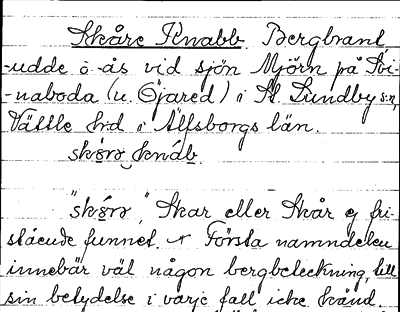 Skåre Knabb. Bergbrant
-udde o ås vid sjön Mjörn på Svi-
-naboda (u. Öjared) i St. Lundby s:n,
Vättle hrd i Älfsborgs län.
skǫ́rə knáb.
"skǫ́rə", Skar eller Skår ej fri-
stående funnet. Första namndelen
innebär väl någon bergbeteckning, till
sin betydelse i varje fall icke känd.